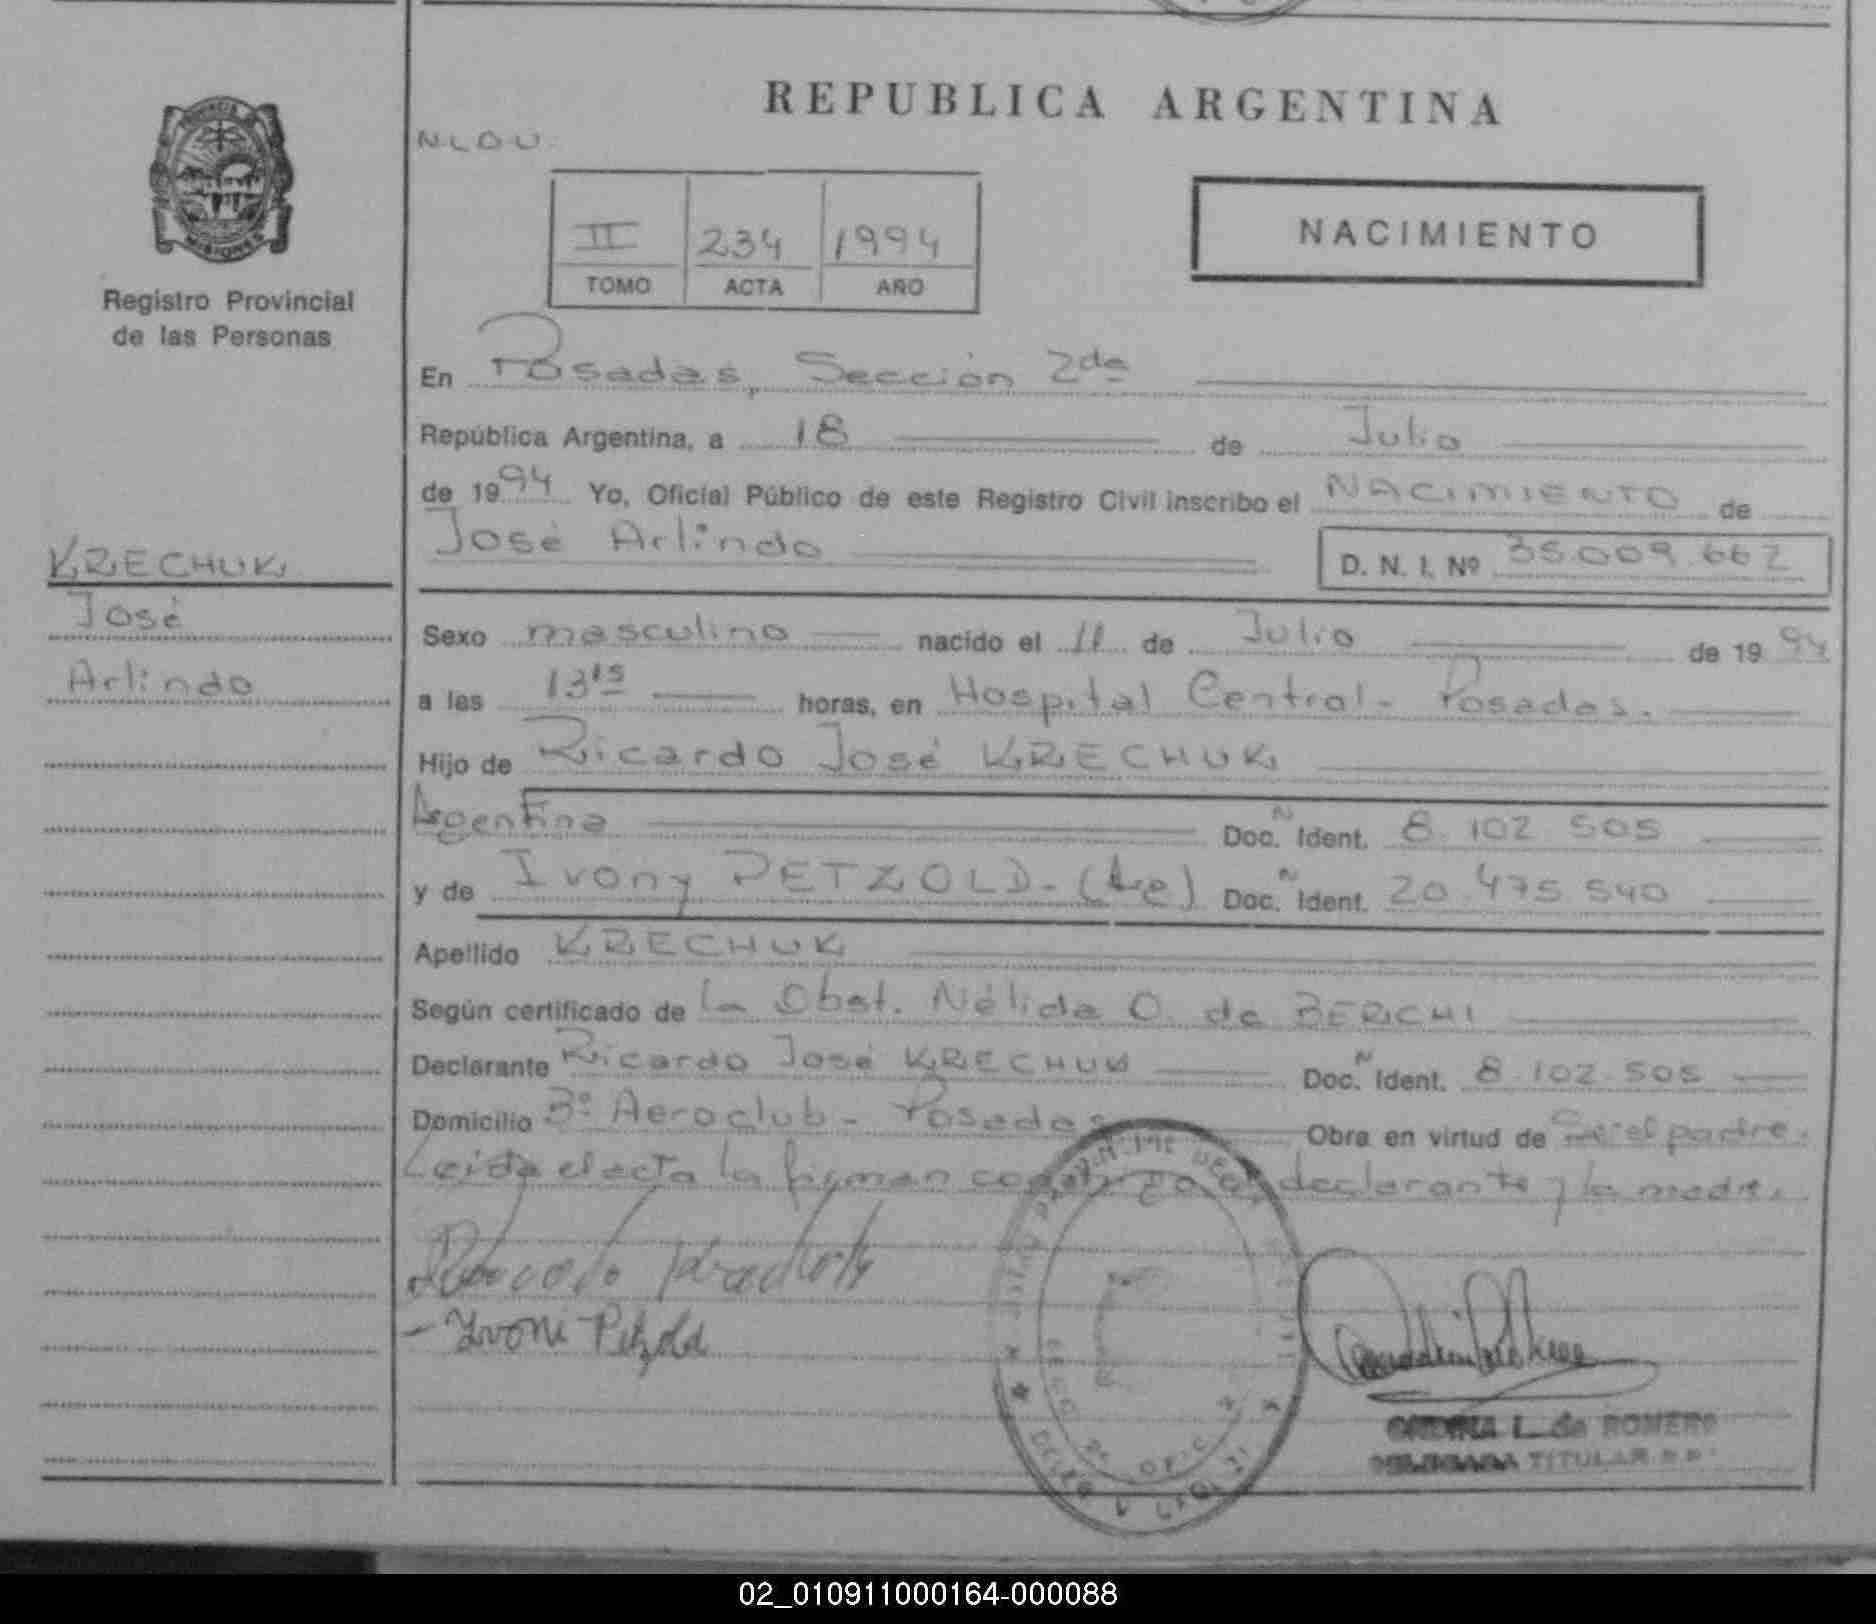 REPUBLICA ARGENTINA
N.L.O.U.
II 234 1994
TOMO ACTA AÑO
NACIMIENTO
MISIONES
Registro Provincial
de las Personas
KRECHUK
José
Arlindo
En Posadas, Sección 2da
República Argentina, a 18 de Julio
de 1994 Yo, Oficial Público de este Registro Civil inscribo el NACIMIENTO de
José Arlindo D. N. I. Nº 35.009.662
Sexo masculino nacido el 11 de Julio de 1994
a las 13 15 horas, en Hospital Central - Posadas.
Hijo de Ricardo José KRECHUK
Argentina Doc. N Ident. 8.102.505
y de Ivony PETZOLD - (Ae) Doc. N Ident. 20.475.540
Apellido KRECHUK
Según certificado de la Obst. Nélida O. de BERCHI
Declarante Ricardo José KRECHUK Doc. N Ident. 8.102.505
Domicilio Bº Aeroclub - Posadas Obra en virtud de Ser el padre.
Leída el acta la firman conmigo el declarante y la madre.
Ivoni Petzold
L. de ROMERO
DELEGADA TITULAR R.P.
02_010911000164-000088